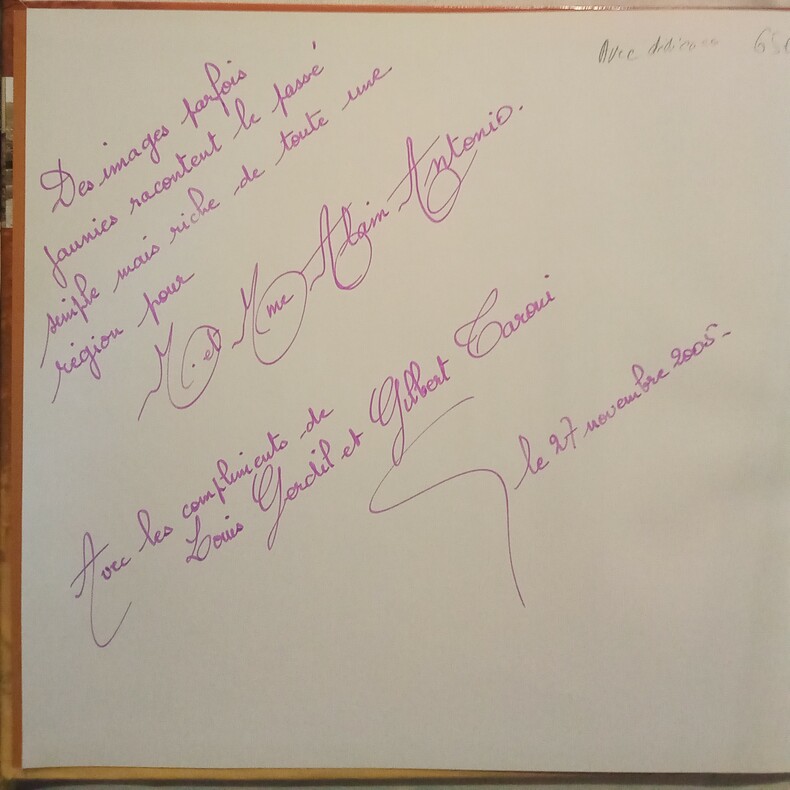 Avec dédicace 65
Des images parfois
jaunies racontent le passé
simple mais riche de toute une
région pour
M. et Mme Alain Antonio.
Avec les compliments de
Louis Gerdil et Gilbert Taroni
le 27 novembre 2005-